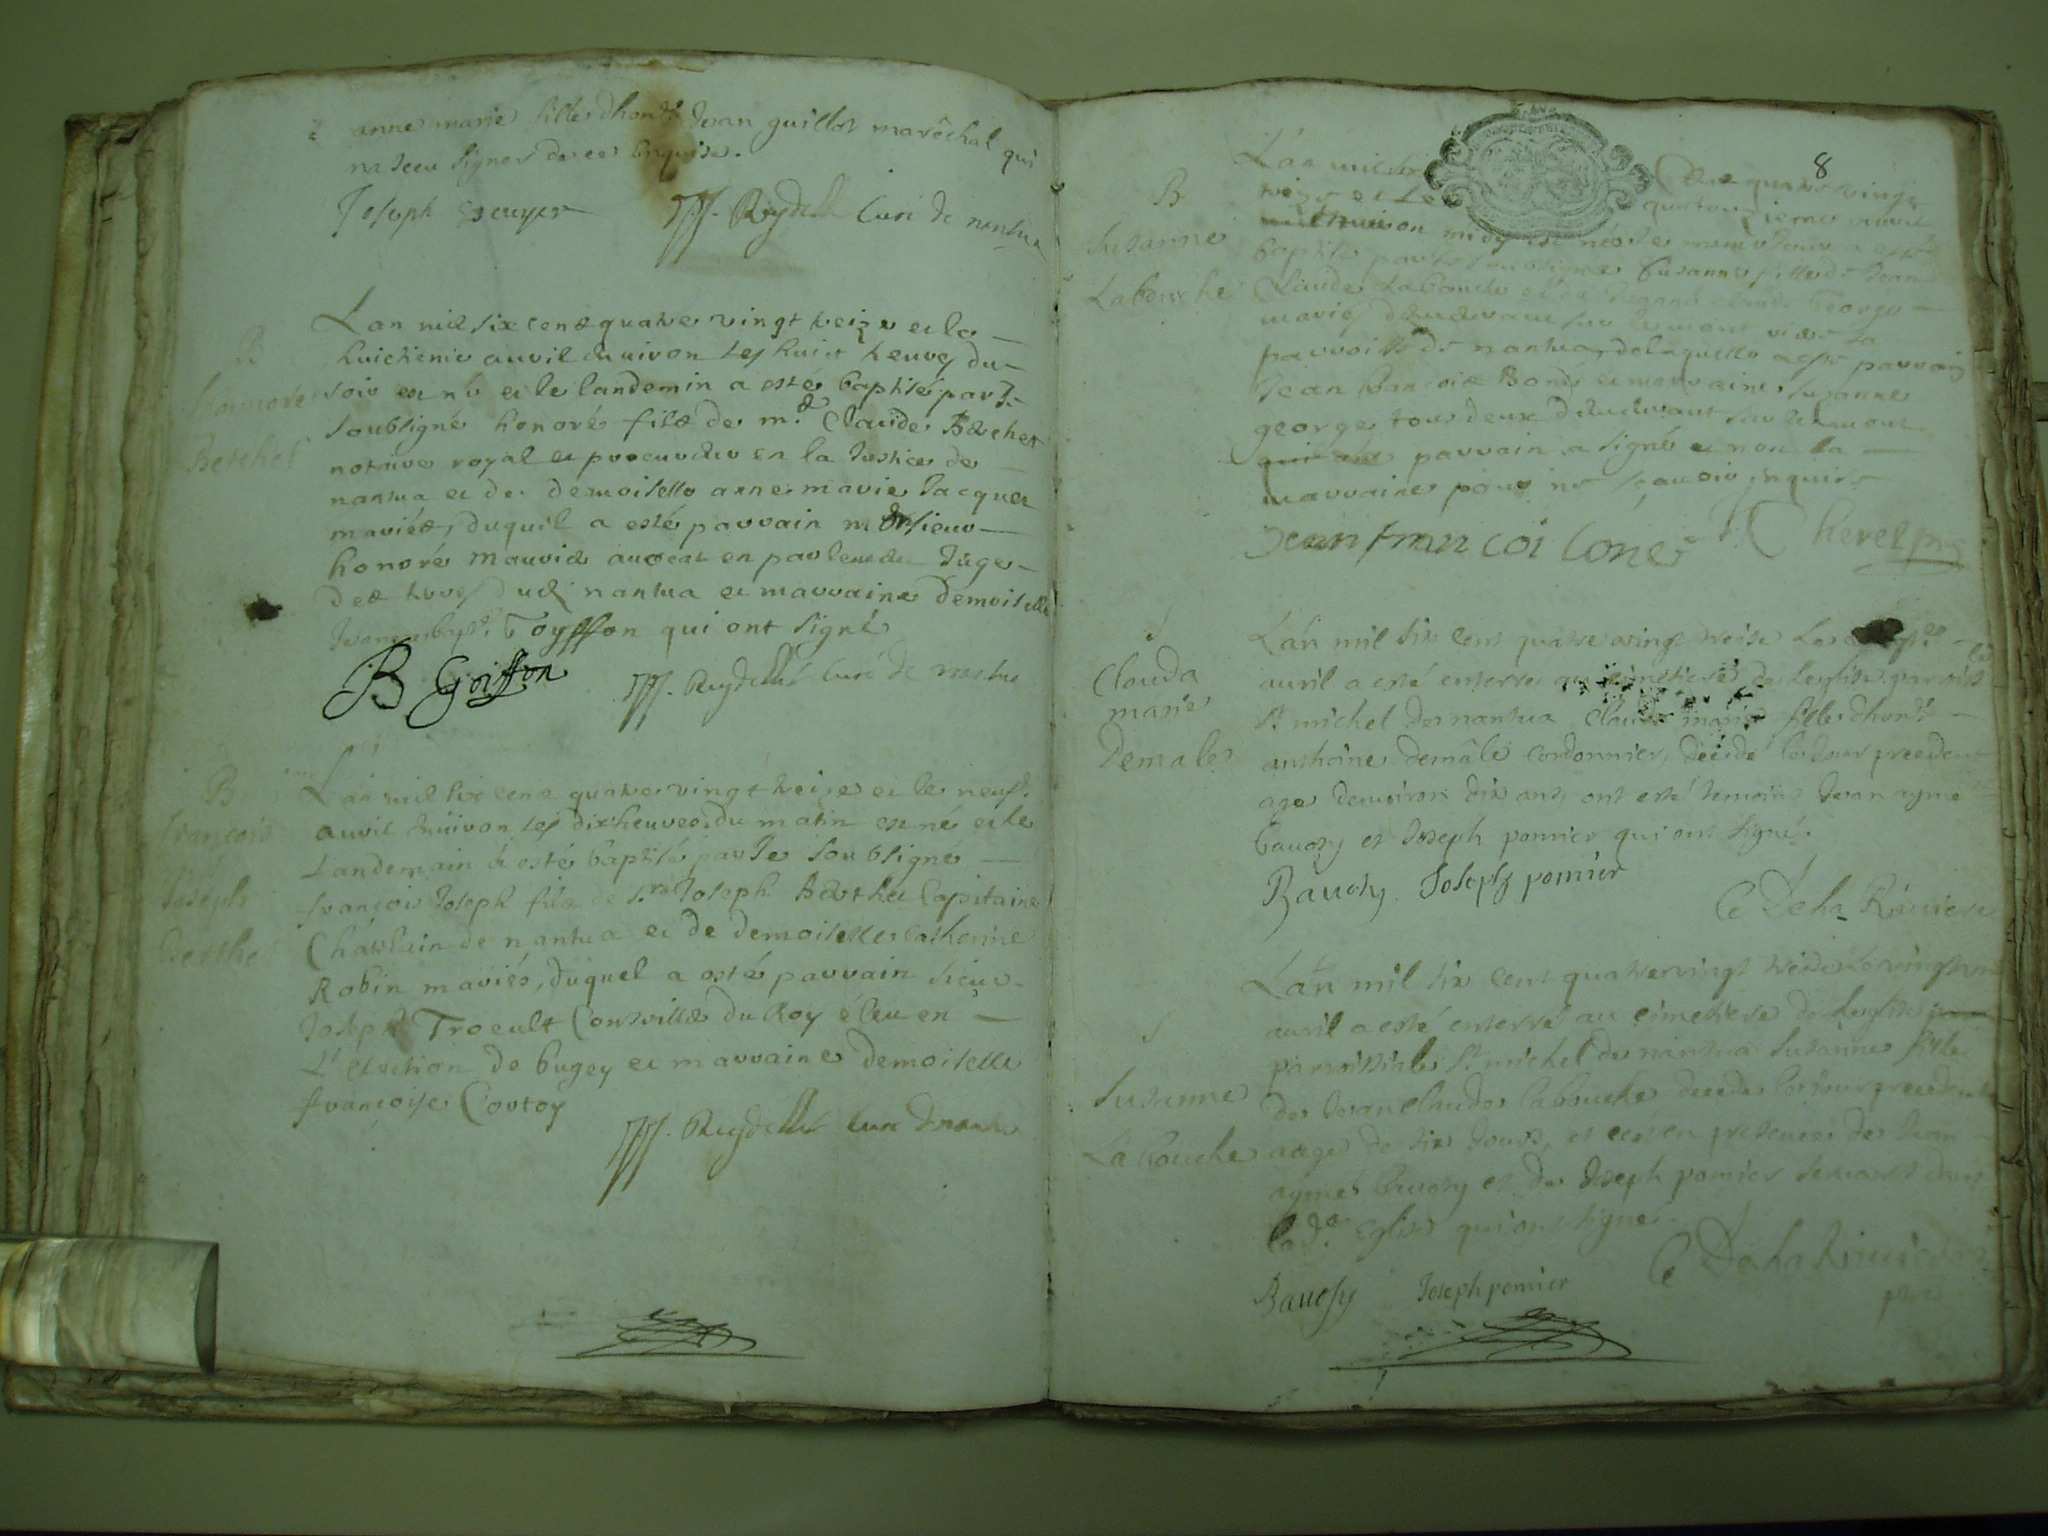 anne marie fille dhon. Jean guillot maréchal qui
na sceu signer de ce enquise.
Joseph Escuyer Reydellet Curé de nantua
B
honoré
Berthet
Lan mil six cent quatre vingt treize et le
huictieme avril enuiron les huict heures du
soir est né et le landemin a esté baptisé par Je
soubsigné honoré filz de m.e Claude Berthet
notaire royal et procureur en la Justice de
nantua et de demoiselle anne marie Jacquet
mariés, duquil a esté parrain monsieur
honoré Mauris auocat en parlement Juge
des terres dud. nantua et marraine demoiselle
Goyffon qui ont signé
B Goiffon Reydellet Curé de nantua
B
françois
Joseph
Berthet
Lan mil six cent quatre vingt treize et le neuf.
auril enuiron les dix heures du matin est né et le
Landemain a esté baptisé par Je soubsigné
françois Joseph filz de s.r Joseph Berthet Capitaine
Chatelain de nantua et de demoiselle catherine
Robin mariés, duquel a esté parrain sieur
Joseph Trocult Conseiller du Roy éleu en
L'election de bugey et marraine demoiselle
françoise Courtoy
Reydellet Curé de nantua
8
B
Susanne
Labouche
Lan mil six quatre vingt
treize et le quatorzieme avril
enuiron midy est née le mesme Jour a esté
baptisée par Je soubsigné Susanne fille de Jean
Claude Labouche et de claude George
mariés demeurant sur le mont
parroisse de nantua, de laquelle a esté parrain
Jean françois Boné et marraine, susanne
george tous deux demeurant sur le mont
parrain a signé et non la
marraine pour ne sçauoir, enquise
Jean francoi Coné Cheret pre
S
Clauda
marie
Demale
Lan mil six cent quatre vingt treise Le
auril a esté enterré au cimetiere de Leglise parroiss.
St. michel de nantua Clauda marie fille dhon.
anthoine demâle cordonnier, décédé le Jour precedent
age denuiron dix ans ont esté temoins Jean aymé
bauory et Joseph pomier qui ont signé.
Bauory Joseph pomier
C De La Riuiere
S
Susanne
La bouche
Lan mil six cent quatre vingt treise Le vingt
auril a esté enterré au cimetiere de Leglise
parroissiale St. michel de nantua Susanne fille
de Jean Claude labouche decedee le Jour precedent
aage de six Jours, et ce en presence de Jean
aymé bauory et de Joseph pomier seruants dans
lad.e Eglise qui ont signé.
Bauory Joseph pomier C De La Riuiere
pre